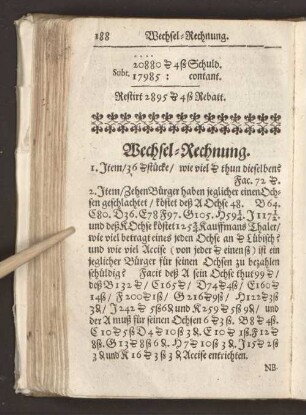 188 Wechsel-Rechnung.
20880 ₰ 4ß Schuld.
Sobt. 17985 : contant.
Restirt 2895 ₰ 4ß Rebait.
Wechsel-Rechnung.
1. Item/ 36 ₰stücke/ wie viel ₰ thun dieselben?
Fac. 72 ₰.
2. Item/ Zehen Bürger haben jeglicher einen Och-
sen geschlachtet/ köstet deß A Ochse 48. B 64.
C 80. D 36. E 78 F 97. G 105. H 59½ J 117¼.
und deß K Ochse köstet 12 Kauffmans Thaler/
wie viel betragt eines jeden Ochse an ₰ Lübisch?
und wie viel Accise (von jeder ₰ einen ß) ist ein
jeglicher Bürger für seinen Ochsen zu bezahlen
schüldig? Facit deß A sein Ochse thut 99 ₰/
deß B 132 ₰/ C 165 ₰/ D 74 ₰ 4ß/ E 160 ₰
14ß/ F 200 ₰ 1ß/ G 216 ₰ 9ß/ H 122 ₰ 3ß
3 ₰/ J 242 ₰ 5ß 6 ₰ und K 259 ₰ 5ß 9 ₰/ und
der A muß für seinen Ochsen 6 ₰ 3ß. B 8 ₰ 4ß.
C 10 ₰ 5ß D 4 ₰ 10ß 3 ₰. E 10 ₰ 1ß. F 12 ₰
8ß. G 13 ₰ 8ß 6 ₰. H 7 ₰ 10ß 3 ₰. J 15 ₰ 2ß
3 ₰ und K 16 ₰ 3ß 3 ₰ Accise entrichten.
NB.